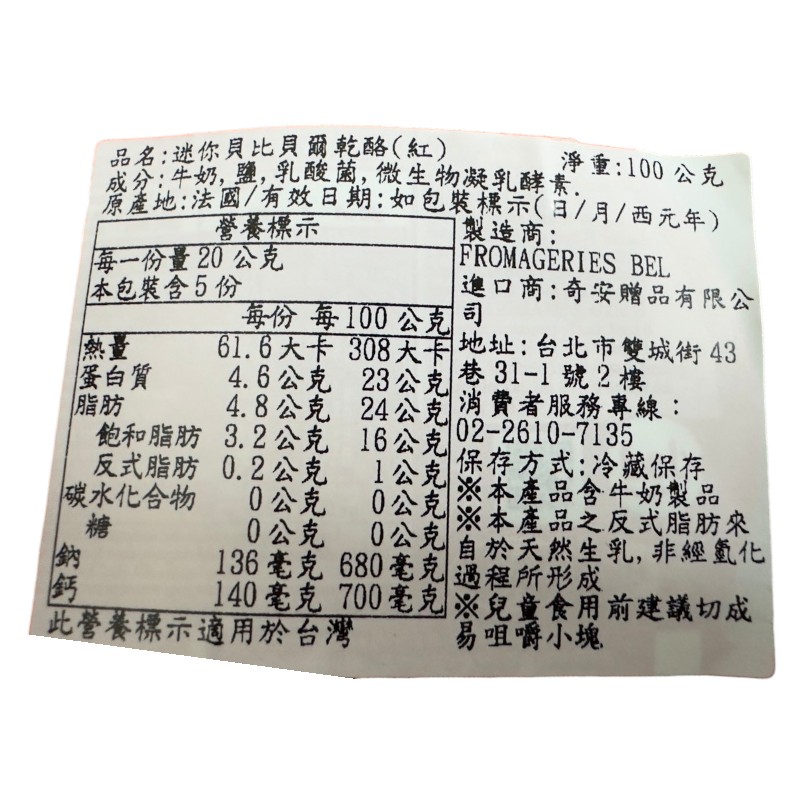 品名:迷你貝比貝爾乾酪(紅) 淨重:100公克
成分:牛奶,鹽,乳酸菌,微生物凝乳酵素.
原產地:法國/有效日期:如包裝標示(日/月/西元年)
營養標示
每一份量20公克
本包裝含5份
每份 每100公克
熱量 61.6大卡 308大卡
蛋白質 4.6公克 23公克
脂肪 4.8公克 24公克
飽和脂肪 3.2公克 16公克
反式脂肪 0.2公克 1公克
碳水化合物 0公克 0公克
糖 0公克 0公克
鈉 136毫克 680毫克
鈣 140毫克 700毫克
此營養標示適用於台灣
製造商:
FROMAGERIES BEL
進口商:奇安贈品有限公
司
地址:台北市雙城街43
巷31-1號2樓
消費者服務專線:
02-2610-7135
保存方式:冷藏保存
※本產品含牛奶製品
※本產品之反式脂肪來
自於天然生乳,非經氫化
過程所形成
※兒童食用前建議切成
易咀嚼小塊.